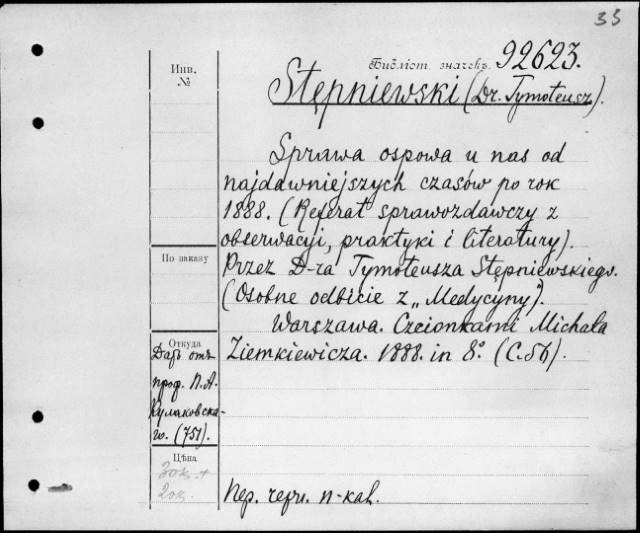 33
Инв.
№
Библіот. значекъ 92623.
Stępniewski (Dr. Tymoteusz).
Sprawa ospowa u nas od
najdawniejszych czasów po rok
1888. (Referat sprawozdawczy z
obserwacyi, praktyki i literatury).
По шкапу
Przez D-ra Tymoteusza Stępniewskiego.
(Osobne odbicie z „Medycyny").
Warszawa. Czcionkami Michała
Ziemkiewicza. 1888. in 8.° (С. 56).
Откуда
Даръ отъ
проф. П. А.
Кулаковска-
го. (751).
Цѣна
30к. +
20к.
Пер.